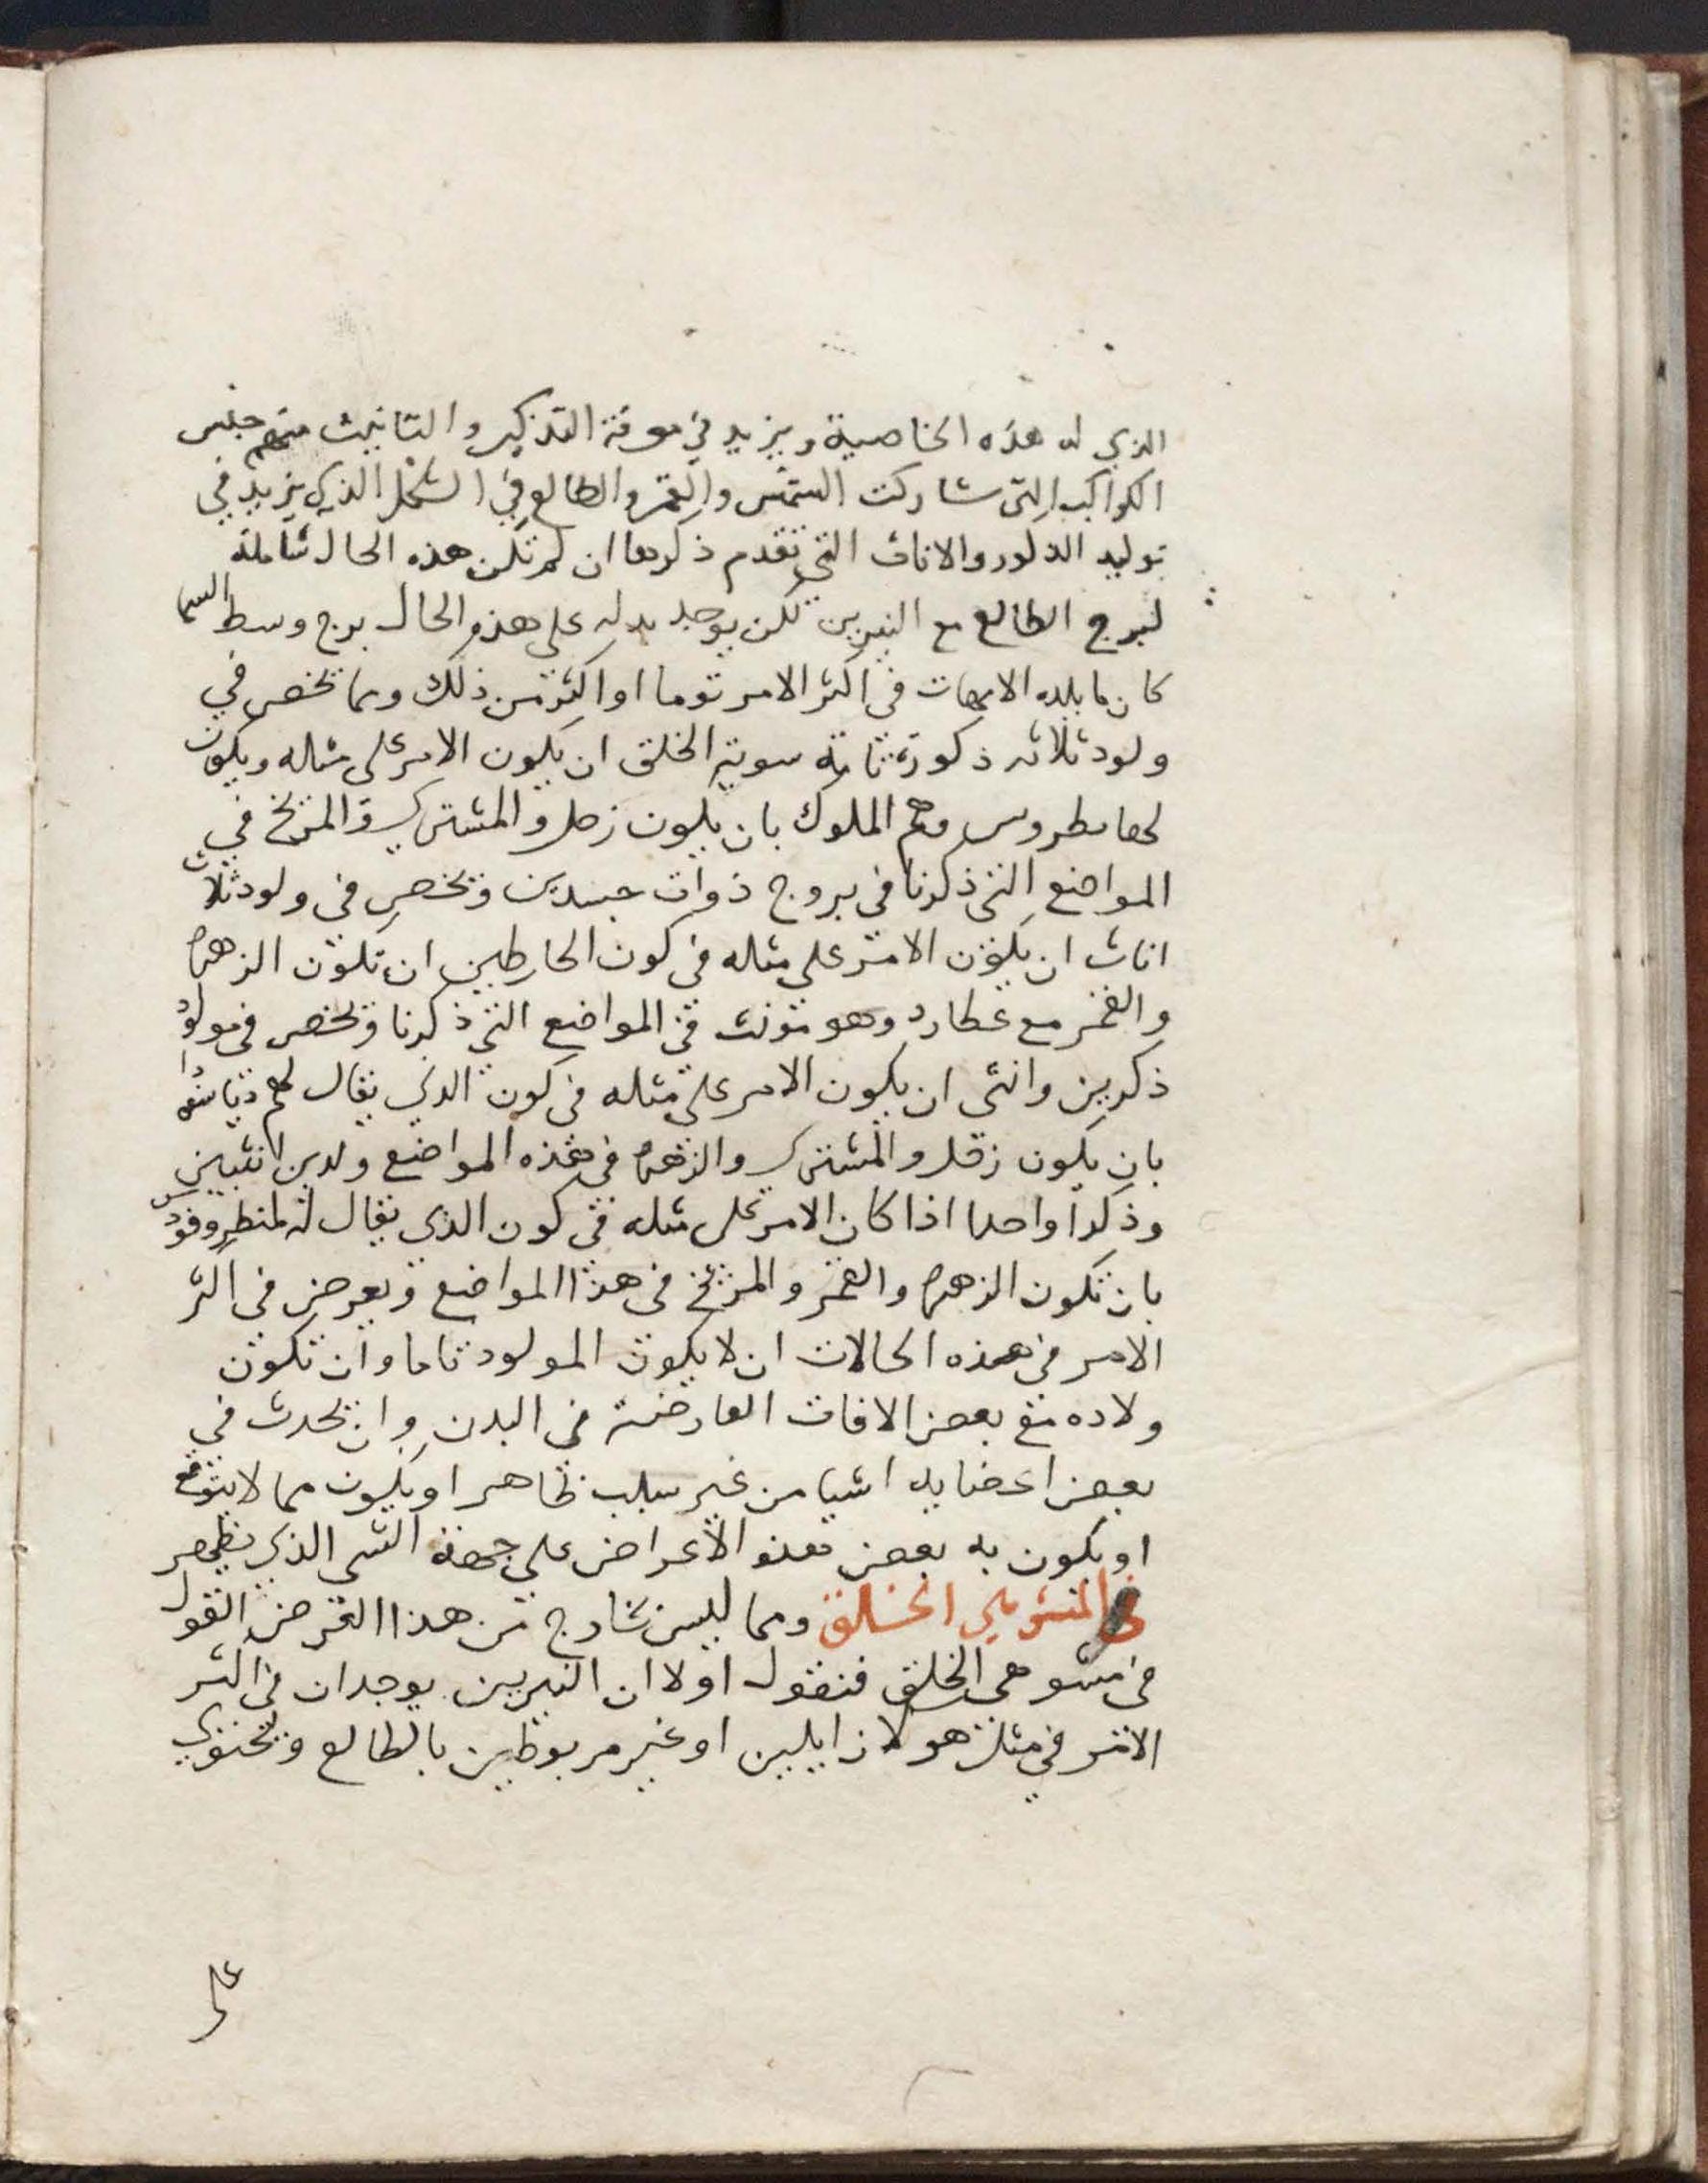 الذي له هذه الخاصية ويزيد في معرفة التذكير والتانيث منهم جنس
الكواكب التي شاركت الشمس والقمر والطالع في الشكل الذي يزيد في
توليد الذكور والاناث التي تقدم ذكرها ان لم تكن هذه الحال شاملة
لبرج الطالع مع النيرين لكن يوجد بدله على هذه الحال برج وسط السما
كان ما يلده الامهات في اكثر الامر توما او اكثر من ذلك وربما تخص في
ولود ثلاثه ذكورة تامة سوية الخلق ان يكون الامر على مثاله ويكون
وهم الملوك بان يكون زحل والمشتري والمريخ في
المواضع التي ذكرنا في بروج ذوات جسدين وتخص في ولود ثلاث
اناث ان يكون الامر على مثاله في كون الحارطين ان تكون الزهرة
والقمر مع عطارد وهو مونث في المواضع التي ذكرنا وتخص في مولود
ذكرين وانثى ان يكون الامر على مثله في كون الذي يقال لهم
بان يكون زحل والمشتري والزهرة في هذه المواضع ولدين انثيين
وذكرا واحدا اذا كان الامر على مثله في كون الذي يقال له
بان تكون الزهرة والقمر والمريخ في هذا المواضع ويعرض في اكثر
الامر في هذه الحالات ان لا يكون المولود تاما وان تكون
ولاده مع بعض الافات العارضة في البدن وان يحدث في
بعض اعضايه اشيا من غير سبب ظاهر او يكون مما لا يتوقع
او يكون به بعض الاعراض على جهة الشي الذي يظهر
في المشوهي الخلق ومما ليس بخارج من هذا الغرض القول
في مشوهي الخلق فنقول اولا ان النيرين يوجدان في اكثر
الامر في مثل هولا زايلين او غير مربوطين بالطالع وتحتوي
على